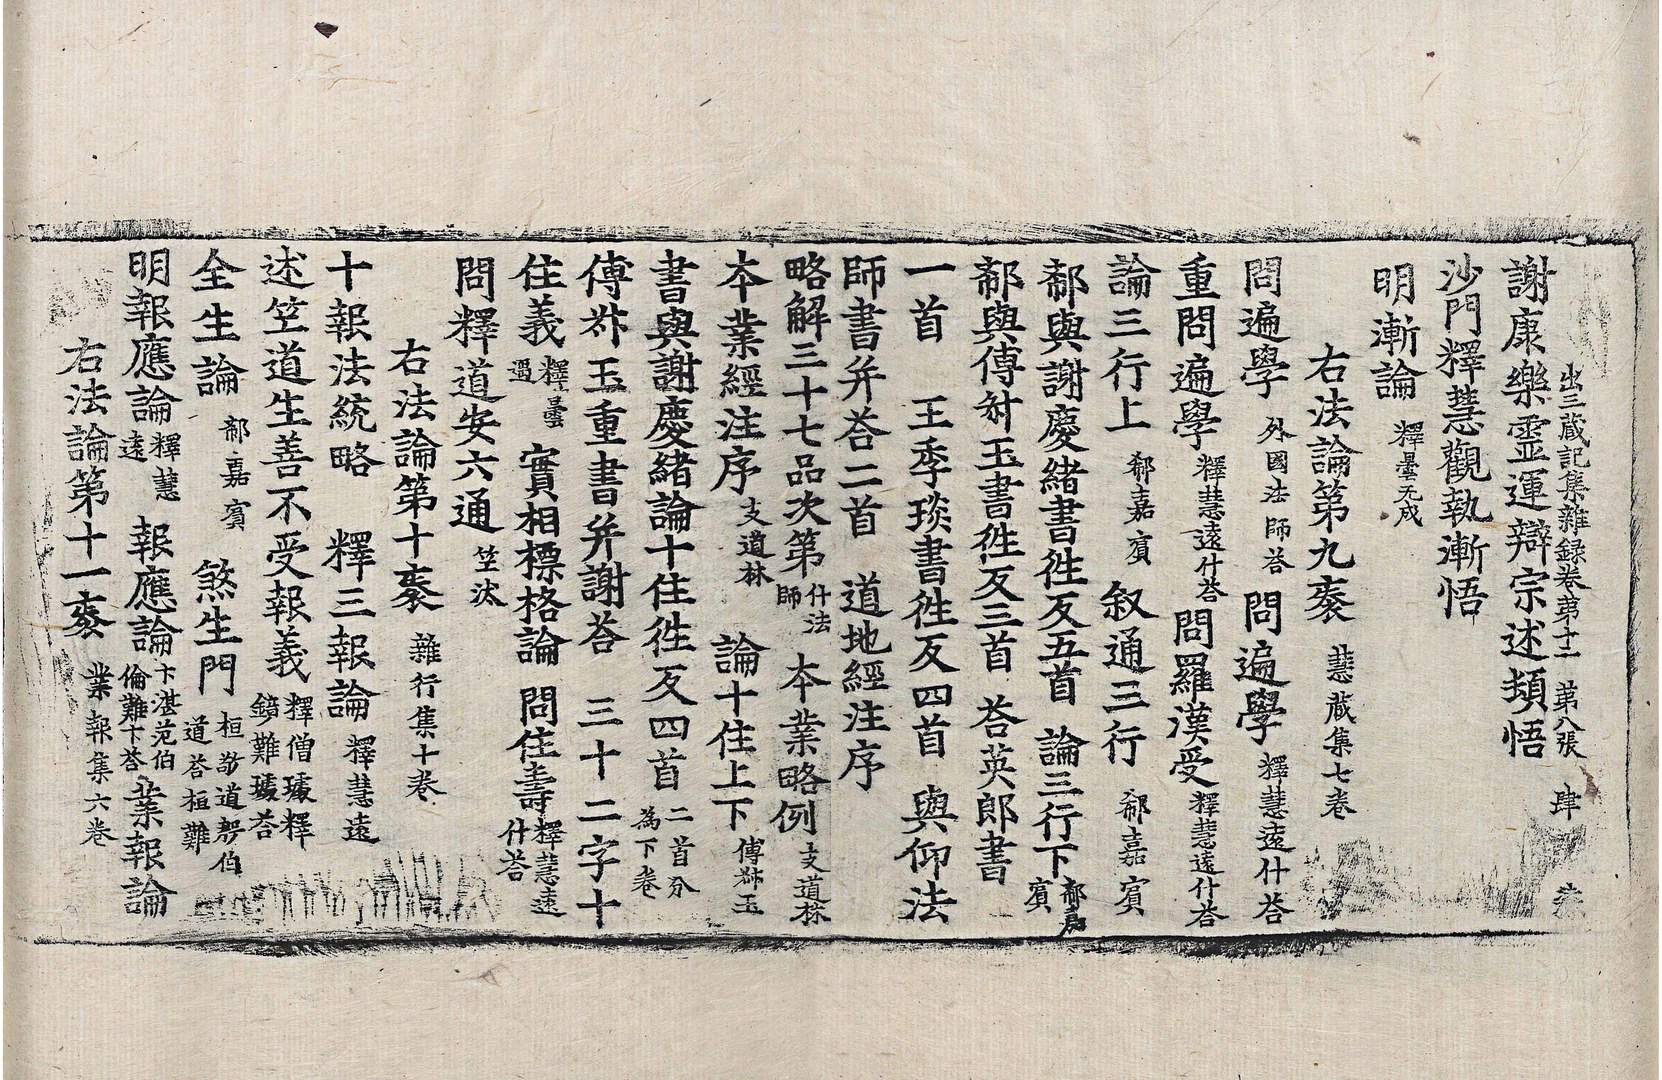 出三藏記集雜録卷第十二 第八張 肆
謝康樂靈運辯宗述頓悟
沙門釋慧觀執漸悟
明漸論 釋曇无成
右法論第九袠 慧藏集七卷
問遍學 外國法師荅 問遍學 釋慧遠什荅
重問遍學 釋慧遠什荅 問羅漢受 釋慧遠什荅
論三行上 郗嘉賔 叙通三行 郗嘉賔
郗與謝慶緒書徃反五首 論三行下 郗嘉賔
郗與傅叔玉書徃反三首 荅英郎書
一首 王季琰書徃反四首 與仰法
師書并荅二首 道地經注序
略解三十七品次第 什法師 本業略例 支道林
本業經注序 支道林 論十住上下 傅叔玉
書與謝慶緒論十住徃反四首 二首分為下卷
傅叔玉重書并謝荅 三十二字十
住義 釋曇遇 實相標格論 問住壽 釋慧遠什荅
問釋道安六通 竺汰
右法論第十袠 雜行集十卷
十報法統略 釋三報論 釋慧遠
述竺道生善不受報義 釋僧璩釋鏡難璩荅
全生論 郗嘉賔 煞生門 桓敬道難伯道荅桓難
明報應論 釋慧遠 報應論 卞湛范伯倫難卞荅 業報論
右法論第十一袠 業報集六卷